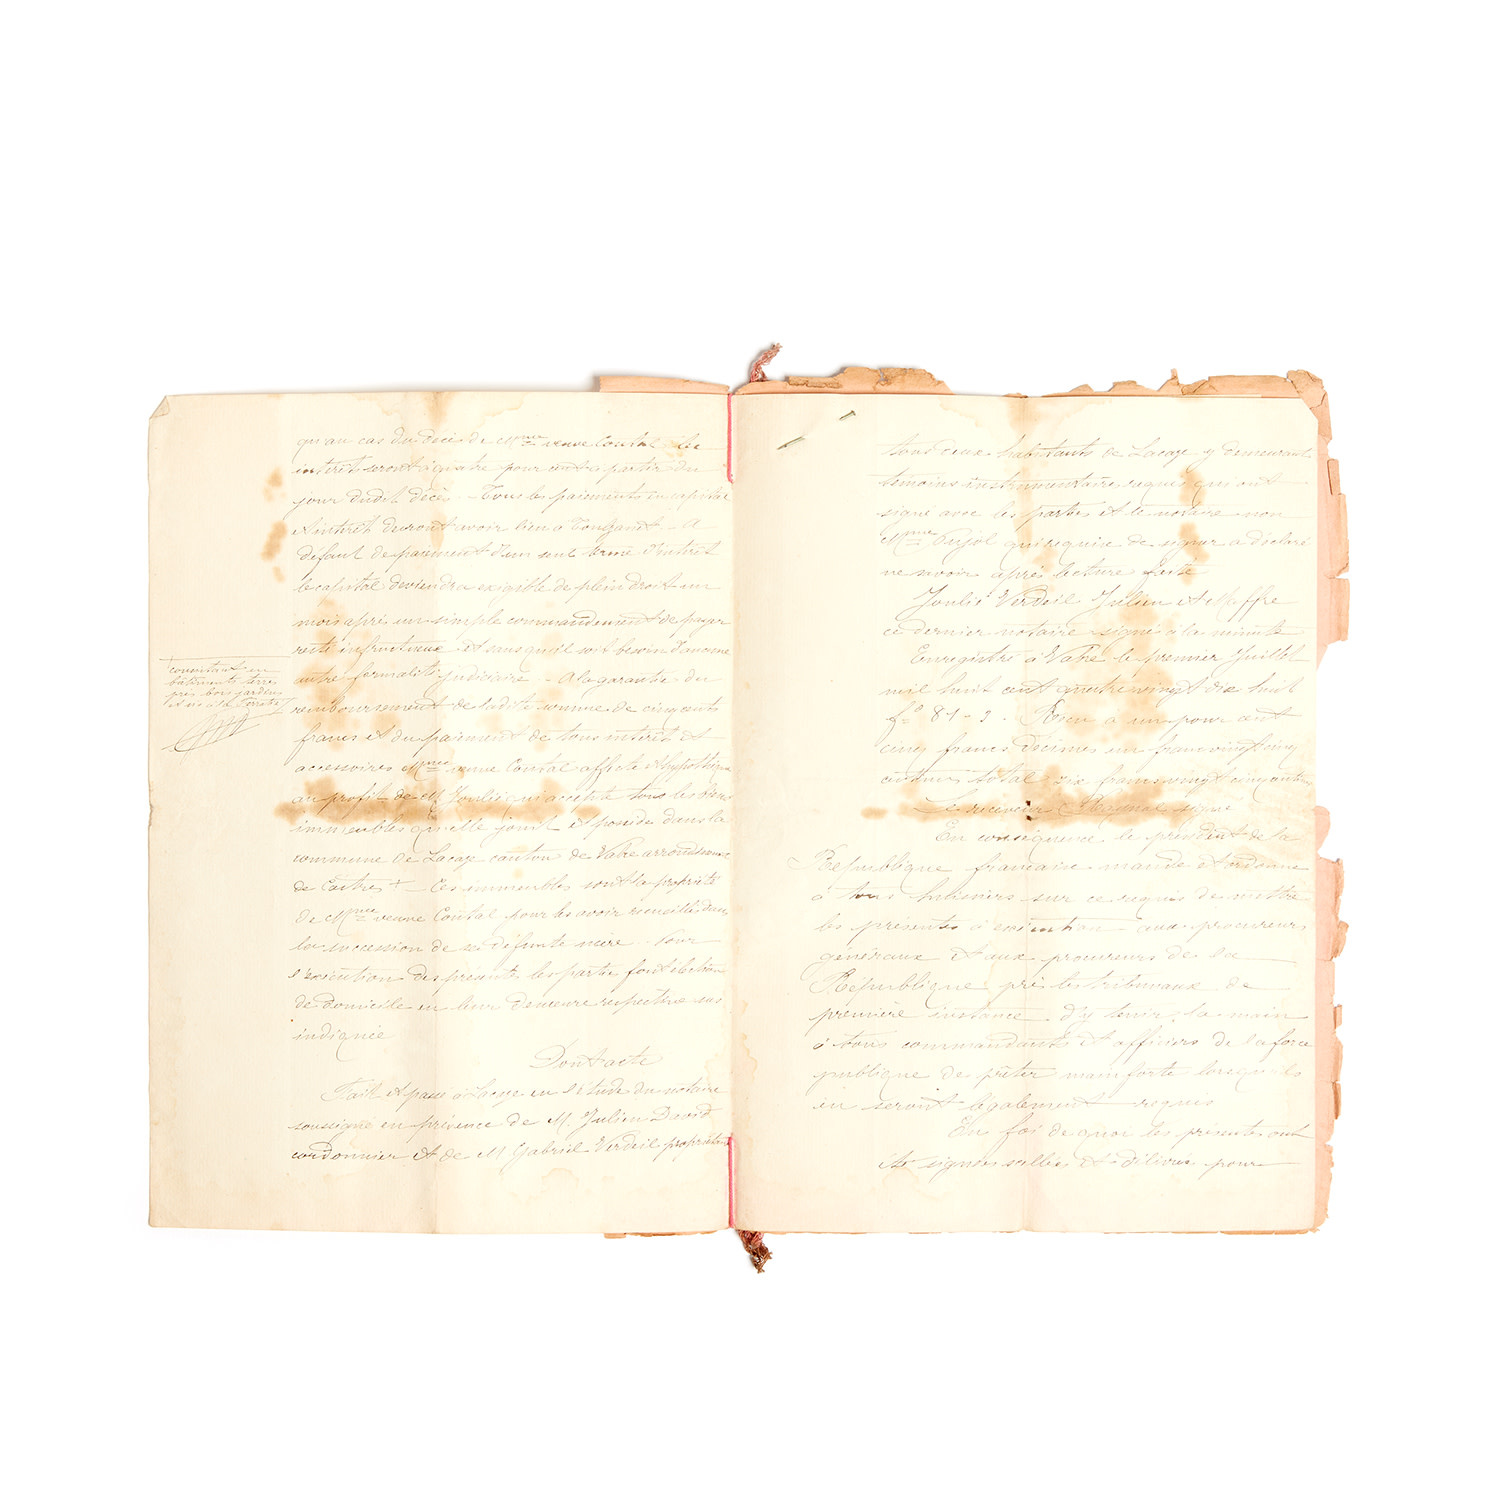 qu'au cas du décès de Mme veuve Coutal les
intérêts seront à quatre pour cent à partir du
jour dudit décès. Tous les paiements en capital
et intérêt devront avoir lieu à
défaut de paiement d'un seul terme d'intérêt
le capital deviendra exigible de plein droit un
mois après un simple commandement de payer
resté infructueux et sans qu'il soit besoin d'aucune
autre formalité judiciaire. A la garantie du
remboursement de ladite somme de cinq cents
francs et du paiement de tous intérêts et
accessoires Mme veuve Coutal affecte et hypothèque
au profit de M. Joulié qui accepte tous les biens
immeubles qu'elle jouit et possède dans la
commune de Lacaze canton de Vabre arrondissement
de Castres + Ces immeubles sont la propriété
de Mme veuve Coutal pour les avoir recueillis dans
la succession de sa défunte mère. Pour
l'exécution des présentes les parties font élection
de domicile en leur demeure respective sus
indiquée
Dont acte
Fait et passé à Lacaze en l'étude du notaire
soussigné en présence de M. Julien David
cordonnier et de M Gabriel Verdeil propriétaire
consistant en
bâtiments terres
prés bois jardins
tous deux habitants de Lacaze y demeurant
témoins instrumentaires requis qui ont
signé avec les parties et le notaire non
Mme Pujol qui requise de signer a déclaré
ne savoir après lecture faite
Joulié Verdeil Julien et Maffre
ce dernier notaire signés à la minute
Enregistré à Vabre le premier Juillet
mil huit cent quatre vingt dix huit
fo 81 - 9. Reçu à un pour cent
cinq francs décimes un franc vingt cinq
centimes total six francs vingt cinq centes
Le receveur signé
En conséquence le président de la
République française mande et ordonne
à tous huissiers sur ce requis de mettre
les présentes à exécution aux procureurs
généraux et aux procureurs de la
République près les tribunaux de
première instance d'y tenir la main
à tous commandants et officiers de la force
publique de prêter main forte lorsqu'ils
en seront légalement requis
En foi de quoi les présentes ont
été signées scellées et délivrées pour